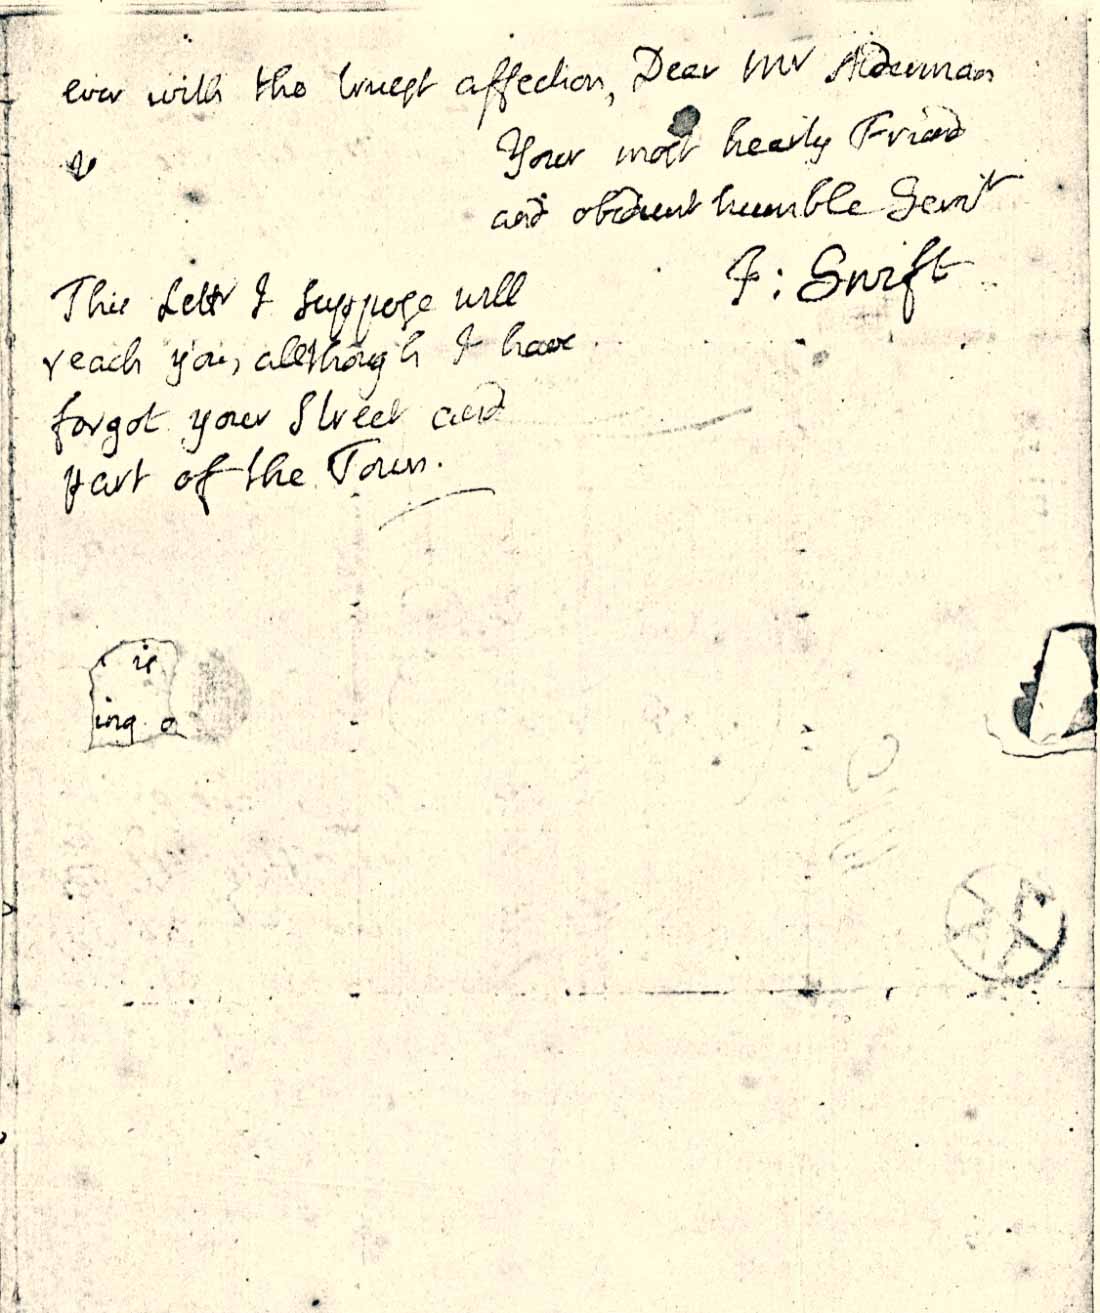 ever with the truest affection, Dear Mr Alderman
Your most hearty Friend
and obedient humble Servt
J: Swift
This Letter I suppose will
reach you, although I have
forgot your Street and
part of the Town.
is
ing o